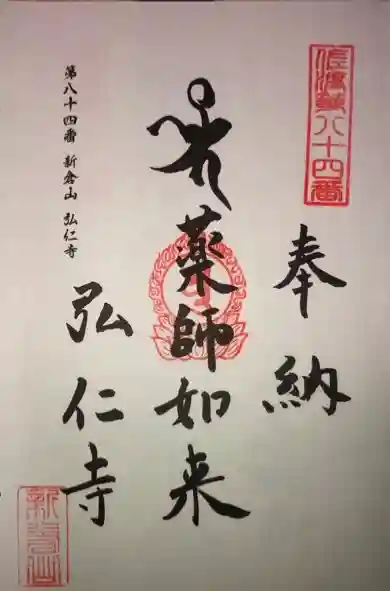 佐渡第八十四番
奉納
薬師如来
弘仁寺
第八十四番 新倉山 弘仁寺
新倉山